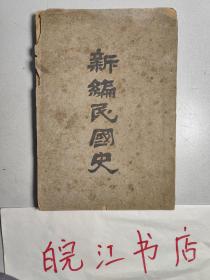 新编民國史
皖江书店